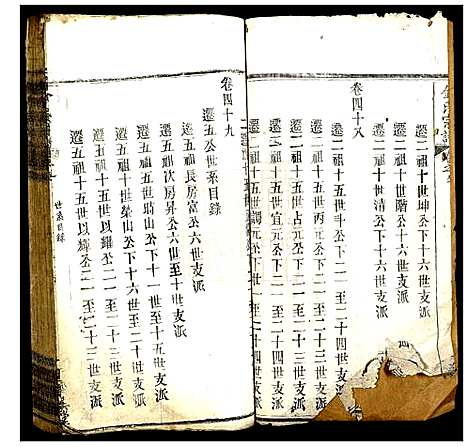 遷二祖十五世坤公下十六世支派
遷二祖十六世清公下十六世支派
卷四十八
遷二祖十五世丰公下二一至二十四世支派
遷二祖十五世丙元公下二一至二十三世支派
遷二祖十五世占元公下二一至二十四世支派
遷二祖十五世宜元公下二一至二十四世支派
遷二祖十五世鐲元公下二一至二十四世支派
卷四十九
遷五公世系目錄
遷五祖長房富公六世支派
遷五祖次房昇公六世至十世支派
遷五祖五世瑞山公下十一世支派
遷五祖十世榮山公下十六世支派
遷五祖十五世以耀公二一至二十三世支派
遷五祖十五世以緯公二一至二十三世支派
世系目錄